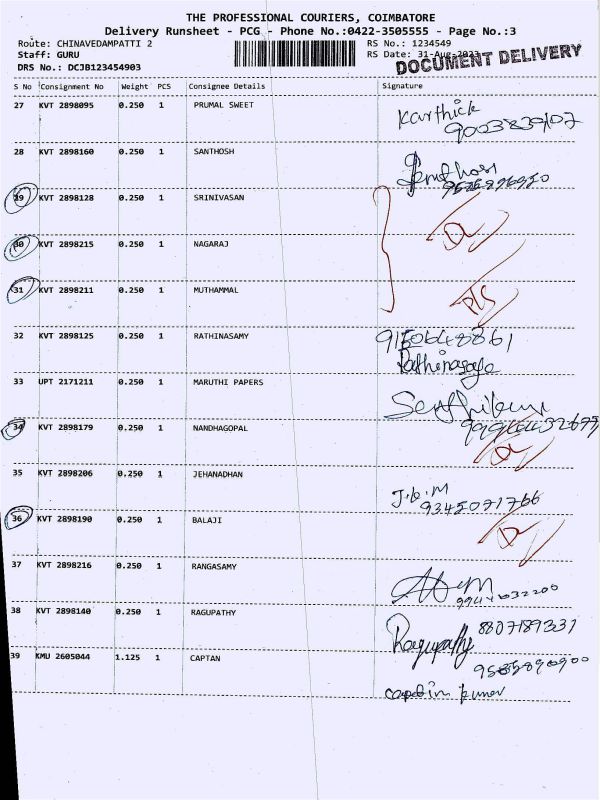 THE PROFESSIONAL COURIERS, COIMBATORE
Delivery Runsheet - PCG - Phone No.:0422-3505555 - Page No.:3
Route: CHINAVEDAMPATTI 2
RS No.: 1234549
Staff: GURU
RS Date: 31-Aug-2023
DRS No.: DCJB123454903
DOCUMENT DELIVERY
S No Consignment No Weight PCS Consignee Details Signature
27 KVT 2898095 0.250 1 PRUMAL SWEET Karthick
28 KVT 2898160 0.250 1 SANTHOSH
29 KVT 2898128 0.250 1 SRINIVASAN
30 KVT 2898215 0.250 1 NAGARAJ
31 KVT 2898211 0.250 1 MUTHAMMAL
32 KVT 2898125 0.250 1 RATHINASAMY
33 UPT 2171211 0.250 1 MARUTHI PAPERS
34 KVT 2898179 0.250 1 NANDHAGOPAL
35 KVT 2898206 0.250 1 JEHANADHAN J.b.M
9345071766
36 KVT 2898190 0.250 1 BALAJI
37 KVT 2898216 0.250 1 RANGASAMY
38 KVT 2898140 0.250 1 RAGUPATHY Ragupathy 8807189331
39 KMU 2605044 1.125 1 CAPTAN